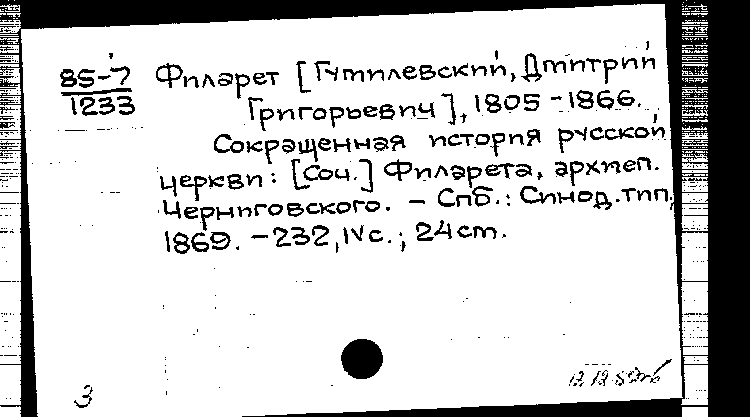 85-7
1233
Филарет [Гумилевский, Дмитрий
Григорьевич], 1805-1866.
Сокращенная история русской
церкви: [Соч.] Филарета, архиеп.
Черниговского. – Спб.: Синод. тип.,
1869. – 232, IV с.; 24 см.
3